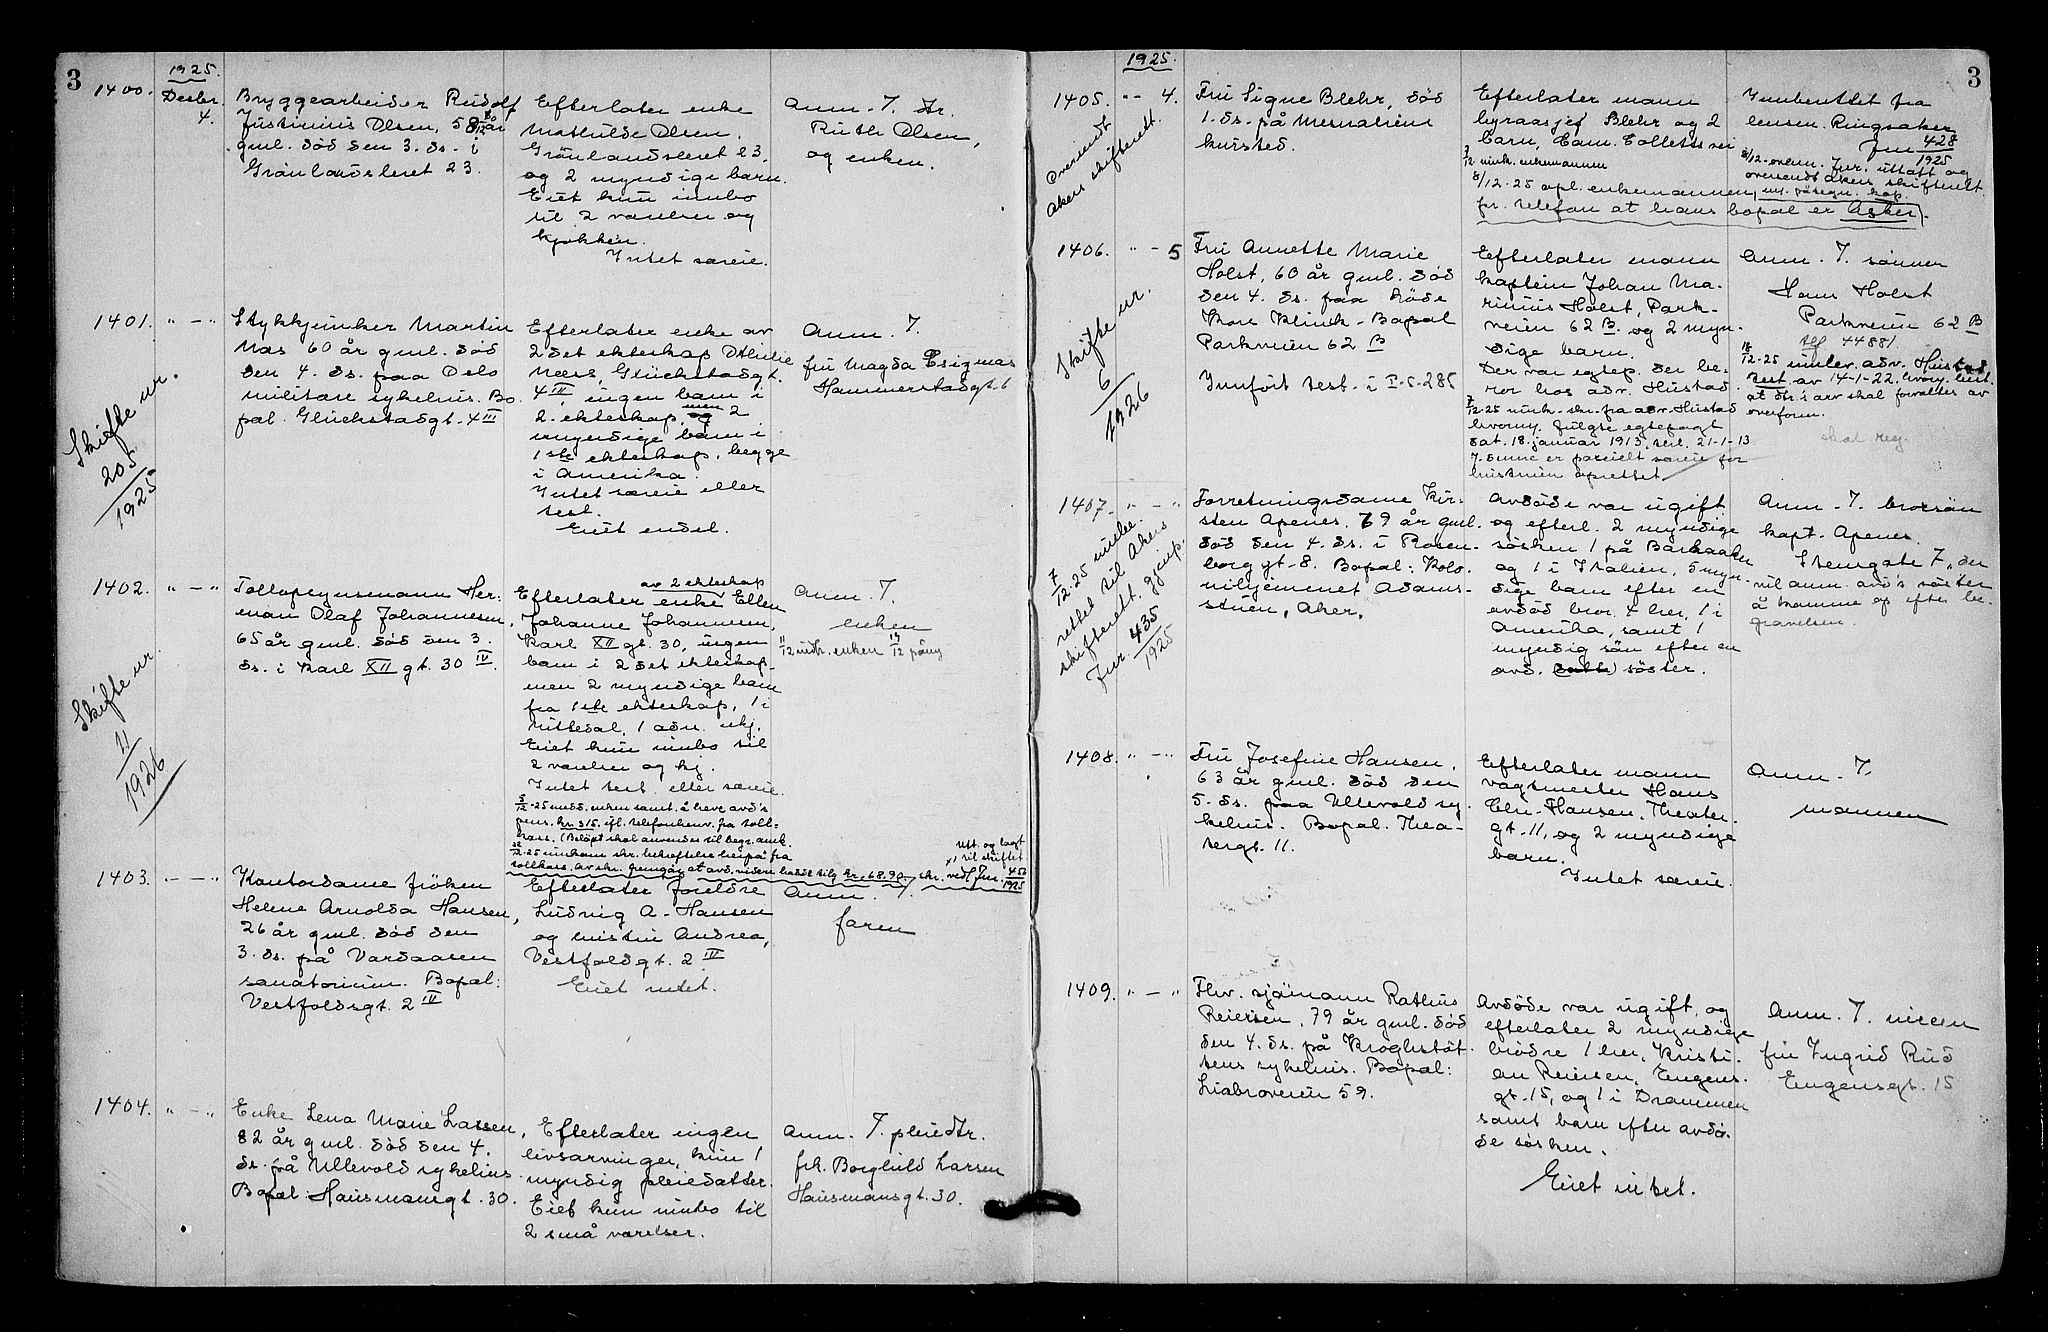 3
1925.
1400.
Desbr.
4.
Bryggearbeider Rudolf
Justinius Olsen, 58 år
gml. død den 3. ds. i
Grønlandsleret 23.
Efterlater enke
Mathilde Olsen,
Grønlandsleret 23,
og 2 myndige barn.
Eiet kun innbo
til 2 værelser og
kjøkken.
Intet særeie.
Anm. 7. dtr.
Ruth Olsen,
og enken.
1401. " — "
Stykkjunker Martin
Næs 60 år gml. død
den 4. ds. paa Oslo
militære sykehus. Bo-
pæl. Glückstadgt. 4 III
Skifte nr.
205
1925
Efterlater enke av
2det ekteskap Othilie
Næss, Glückstadgt.
4 III, ingen barn i
2. ekteskap, men 2
umyndige barn i
1ste ekteskap, begge
i Amerika.
Intet særeie eller
test.
Eiet endel.
Anm. 7.
fru Magda Esigmas
Hammerstadgt. 6
1402. " — "
Tollopsynsmann Her-
man Olaf Johannesen,
65 år gml. død den 3.
ds. i Karl XII gt. 30 IV.
Skifte nr.
11
1926
av 2 ekteskap
Efterlater enke Ellen
Johanne Johannesen,
Karl XII gt. 30, ingen
barn i 2det ekteskap-
men 2 myndige barn
fra 1ste ekteskap, 1 i
Nittedal, 1 adr. ukj.
Eiet kun innbo til
2 værelser og kj.
Intet test. eller særeie.
5/12-25 medd. enken samt. å heve avd's
pens. kr. 315. ifl. telefonhenv. fra toll-
kass. (Beløpet skal anvendes til begr. omk.
12-25 innkom skr. bekreftelse herpå fra
tollkass. av skr. fremgår at avd. videre hadde tilg. kr. 68.90
Utt. og lagt
til skiftet
skr. vedl. Jnr. 450
1925
Anm. 7.
enken
11/12 innk. enken 14/12 påny
1403. — "
Kontordame frøken
Helene Arnolda Hansen,
26 år gml. død den
3. ds. på Vardaasen
sanatorium. Bopæl:
Vestfoldsgt. 2 IV
Efterlater foreldre
Ludvig A. Hansen
og hustru Andrea,
Vestfoldgt. 2 IV
Eiet intet.
Anm. 7.
faren
1404. " — "
Enke Lena Marie Larsen,
82 år gml. død den 4.
ds. på Ullevold sykehus.
Bopæl: Hausmansgt. 30.
Efterlater ingen
livsarvinger, kun 1
myndig pleiedatter.
Eiet kun innbo til
2 små værelser.
Anm. 7. pleiedtr.
frk. Borghild Larsen
Hausmansgt. 30.
3
1925.
1405. " - 4.
Oversendt
Akers skifterett.
Fru Signe Blehr, død
1. ds. på Mesnaliens
kursted.
Efterlater mann
byråasjef Blehr og 2
barn, Cam. Colletts vei
7/12 innk. enkemannen
8/12-25 opl. enkemannen
pr. telefon at hans bopæl er Asker.
Innberettet fra
lensm. Ringsaker
Jnr 428
1925
8/12-overn. Jnr. uttatt og
oversendt Akers skifterett
m. påtegn. kop.
1406. " - 5
Skifte nr.
6
1926
Fru Annette Marie
Holst, 60 år gml. død
den 4. ds. paa Røde
Kors Klinik - Bopæl
Parkveien 62 B
Innført test. i I-S-285
Efterlater mann
kaptein Johan Ma-
rinius Holst, Park-
veien 62 B. og 2 myn-
dige barn.
Der var egtep. der be-
ror hos adv. Hustad.
7/12-25 innk. skr. fra adv. Hustad
hvorny. fulgte egtepagt
dat. 18. januar 1913, tinl. 21-1-13
7. denne er parcielt særeie for
hustruen oprettet.
Anm. 7. sønnen
Hans Holst
Parkveien 62 B
tlf 44881.
18/12-25 innlev. adv. Hustad
test. av 14-1-22, hvorny. best.
at dtr.s arv skal forvaltes av
overform.
skal reg.
1407. " — "
7/12-25 innbe-
rettet til Akers
skifterett. gjenp.
Jnr. 435
1925
Forretningsdame Kir-
sten Apenes. 79 år gml.
død den 4. ds. i Rosen-
borggt. 8. Bopæl: Kolo-
nihjemmet Adams-
stuen, Aker.
Avdøde var ugift
og efterl. 2 myndige
søsken 1 på Barkaaker
og 1 i Italien, 5 myn-
dige barn efter en
avdød bror. 4 her, 1 i
Amerika, samt 1
myndig søn efter en
avd. søster.
Anm. 7. brorsøn
kapt. Apenes.
Stensgate 7, der
vil anm. avd's søster
å komme op efter be-
gravelsen.
1408. " — "
Fru Josefine Hansen,
63 år gml. død den
5. ds. paa Ullevold sy-
kehus. Bopæl. Thea-
tergt. 11.
Efterlater mann
vagtmester Hans
Chr. Hansen, Theater-
gt. 11, og 2 myndige
barn.
Intet særeie.
Anm. 7.
mannen
1409. " — "
Fhv. sjømann Rathus
Reiersen, 79 år gml. død
den 4. ds. på Kroghstøt-
tens sykehus. Bopæl:
Liabroveien 59.
Avdøde var ugift, og
efterlater 2 myndige
brødre 1 her, Kristi-
an Reiersen, Eugens-
gt. 15, og 1 i Drammen
samt barn efter avdø-
de søsken.
Eiet intet.
Anm. 7. niesen
fru Ingrid Rud
Eugensgt. 15